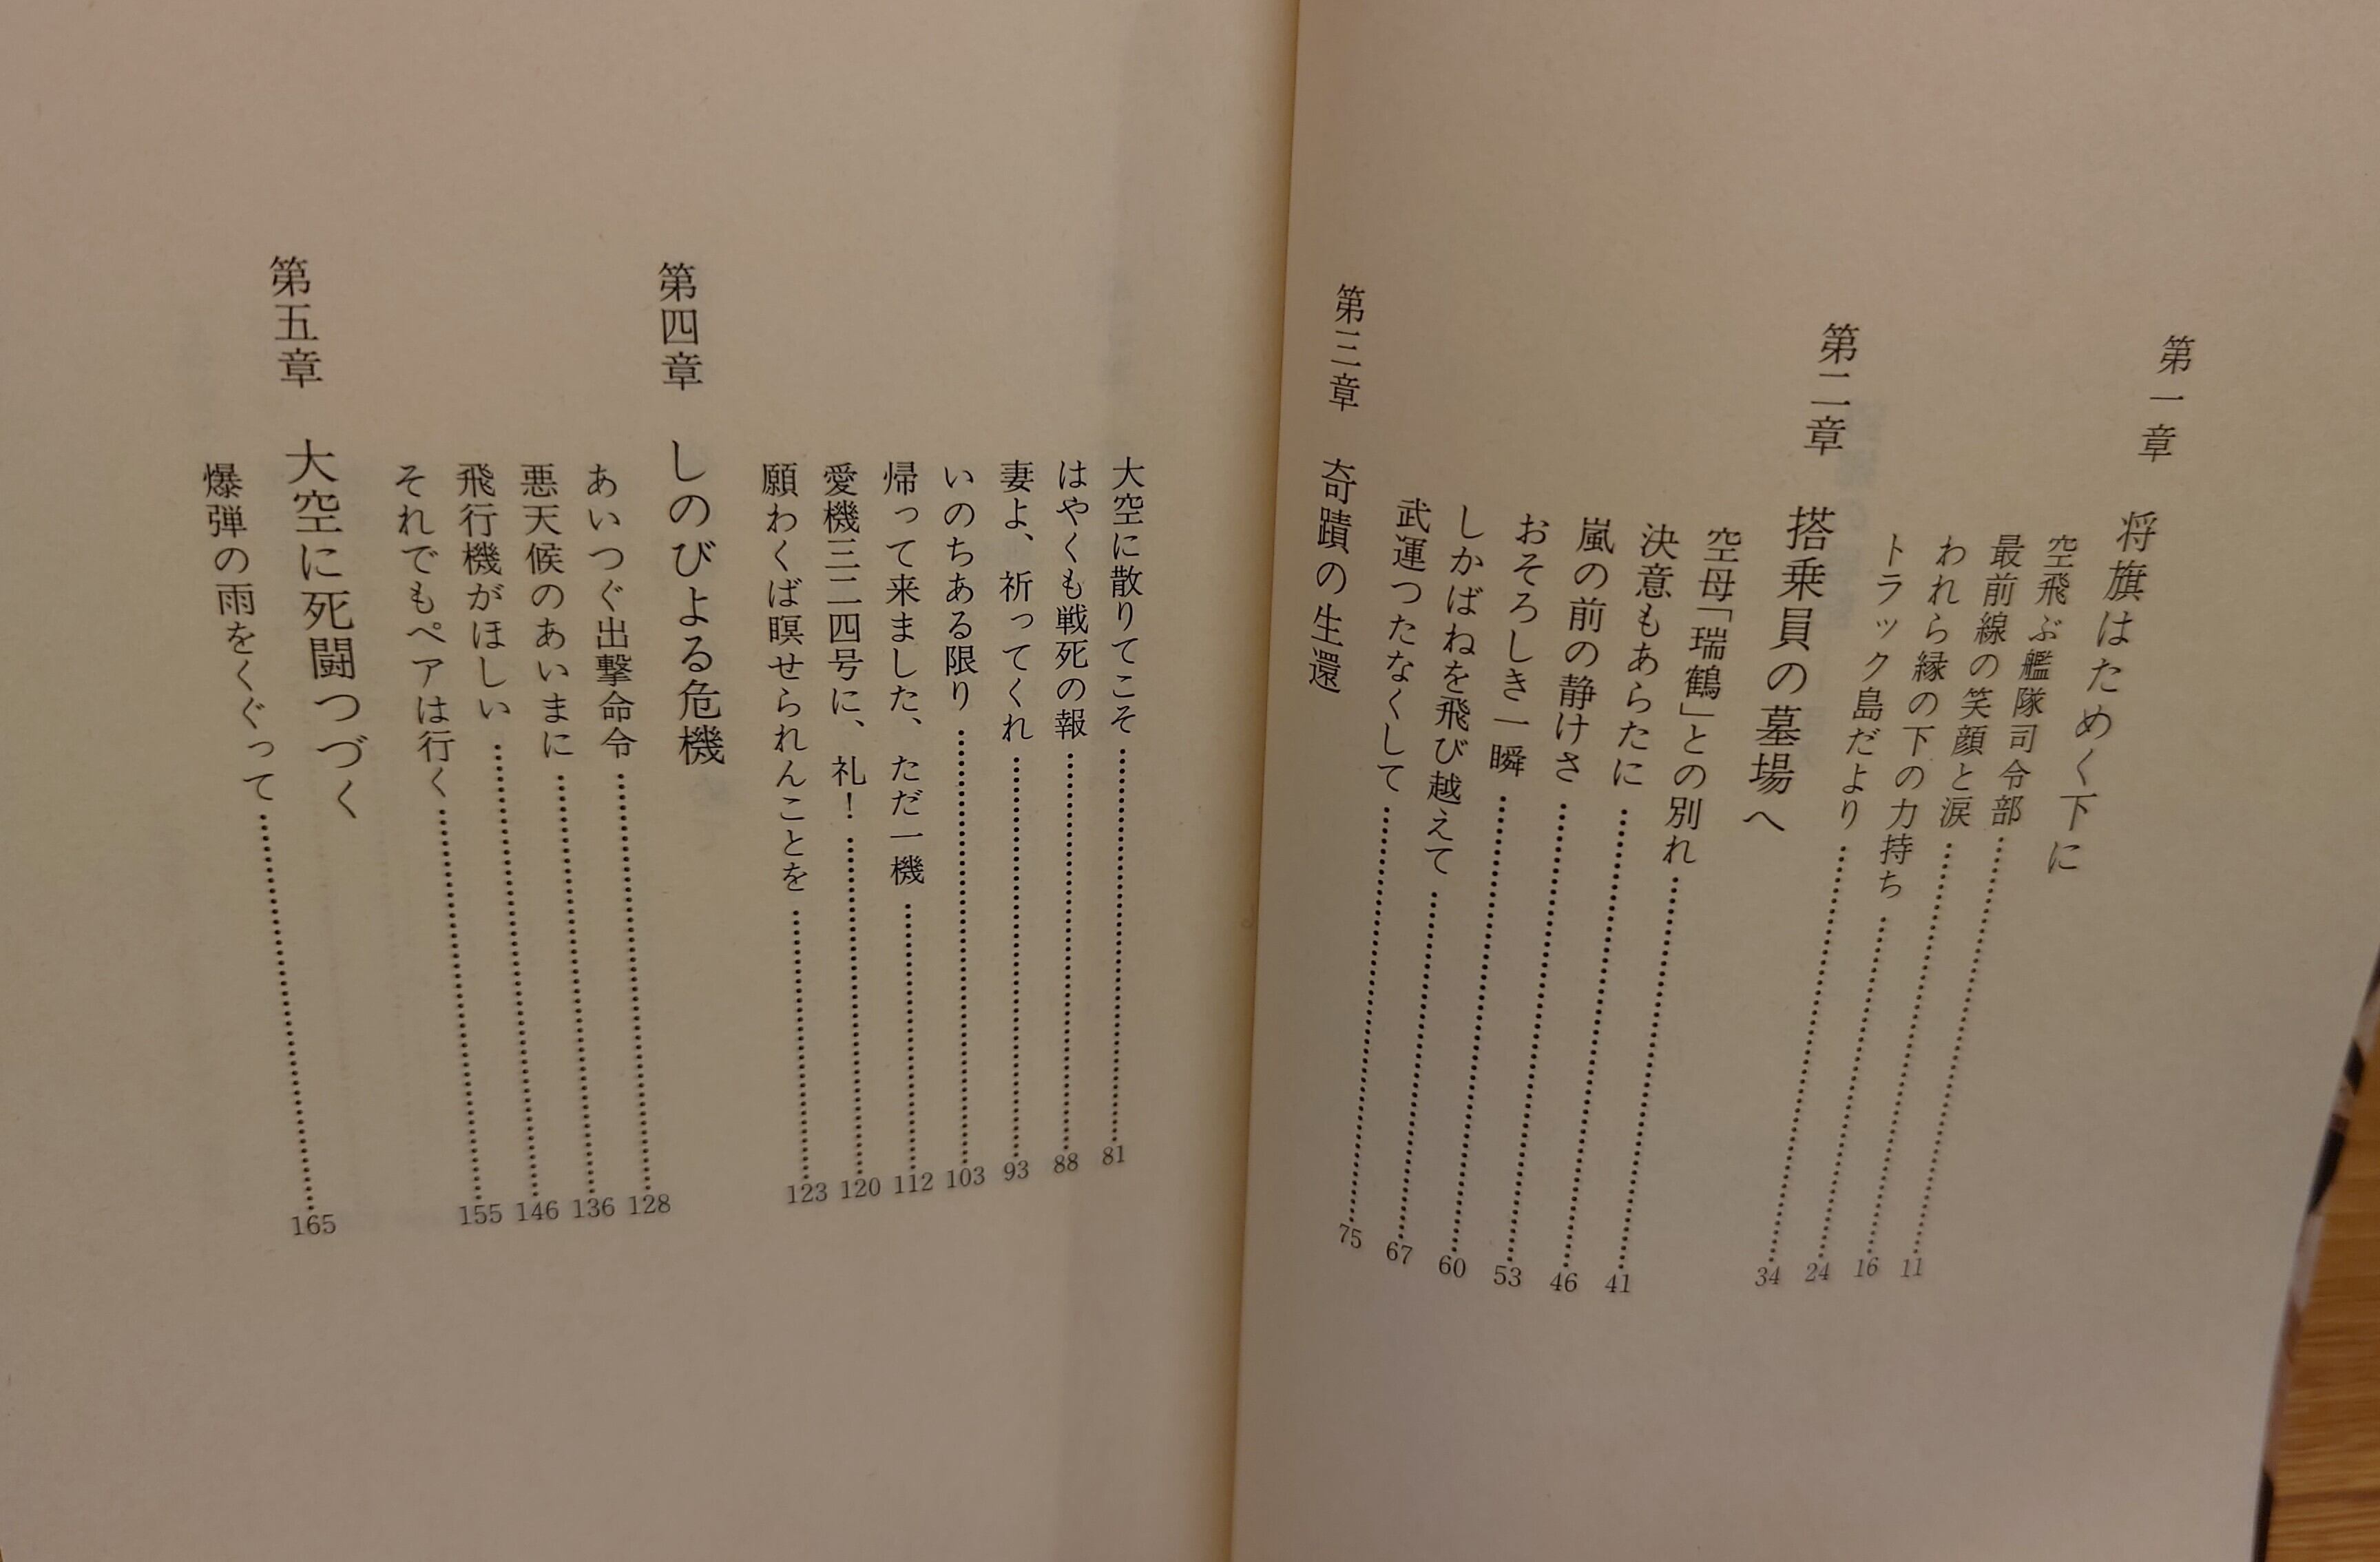 第一章　将旗はためく下に
空飛ぶ艦隊司令部……11
最前線の笑顔と涙……16
われら縁の下の力持ち……24
トラック島だより……34
第二章　搭乗員の墓場へ
空母「瑞鶴」との別れ……41
決意もあらたに……46
嵐の前の静けさ……53
おそろしき一瞬……60
しかばねを飛び越えて……67
武運つたなくして……75
第三章　奇蹟の生還
大空に散りてこそ……81
はやくも戦死の報……88
妻よ、祈ってくれ……93
いのちある限り……103
帰って来ました、ただ一機……112
愛機三二四号に、礼！……120
願わくば瞑せられんことを……123
第四章　しのびよる危機
あいつぐ出撃命令……128
悪天候のあいまに……136
飛行機がほしい……146
それでもペアは行く……155
第五章　大空に死闘つづく
爆弾の雨をくぐって……165